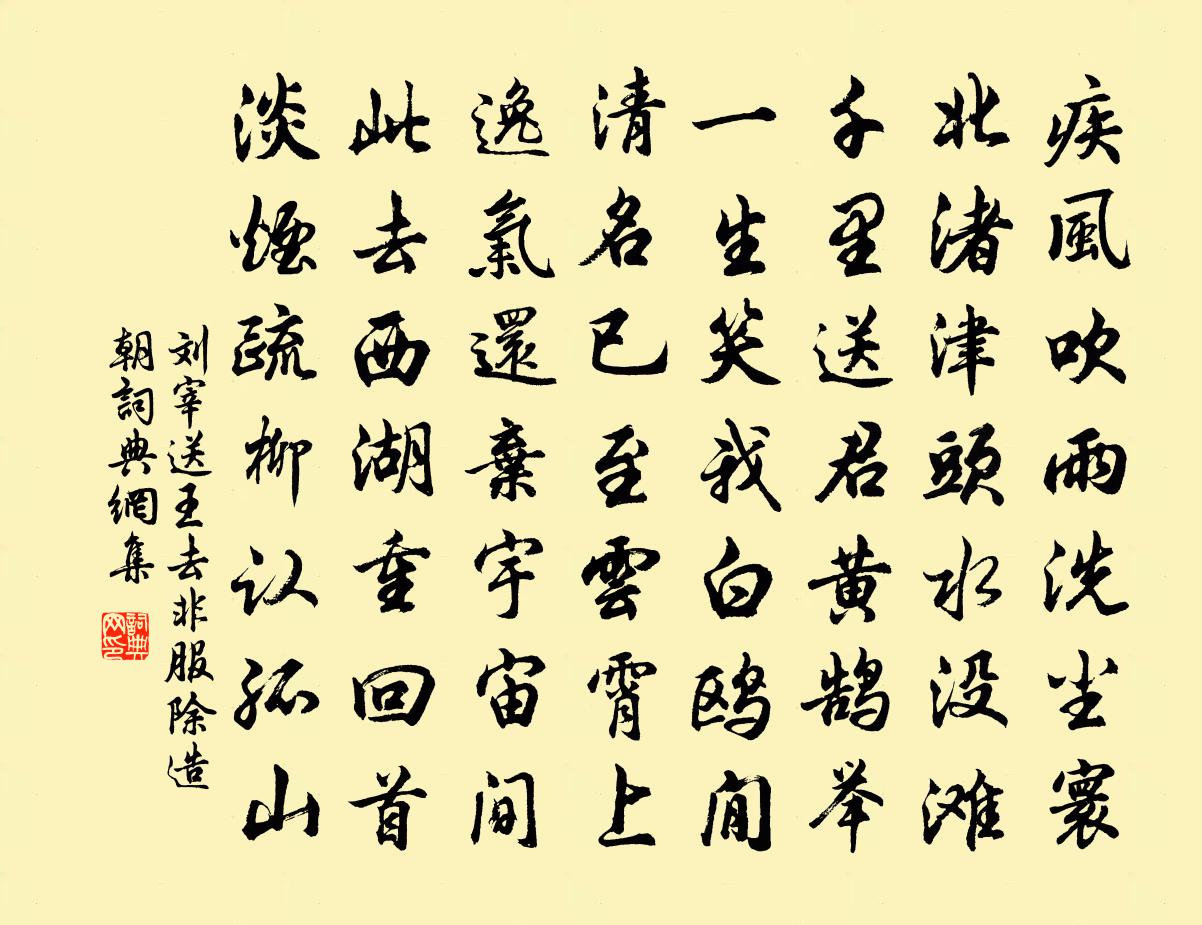 疾風吹雨洗尘寰
北渚津頭水没滩
千里送君黄鹄举
一生笑我白鸥閒
清名已至雲霄上
逸氣還棄宇宙間
此去西湖重回首
淡煙疏柳认孤山
刘宰送王去非服除造
朝詞典網集
詞典网印